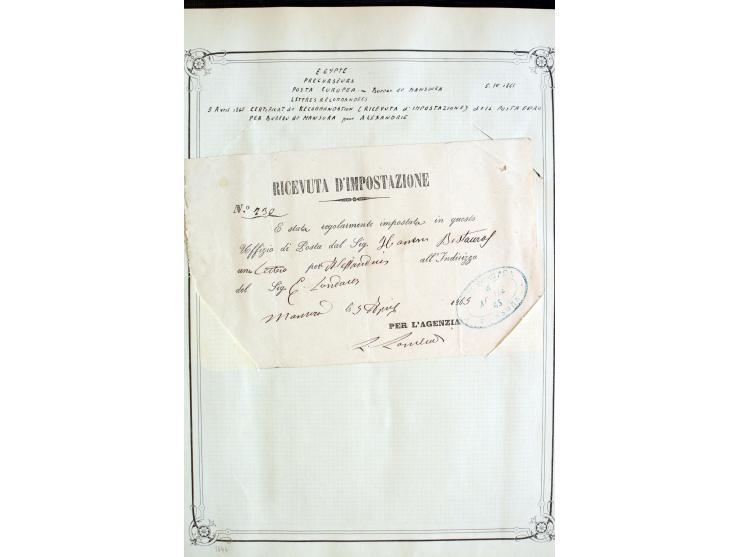 EGYPTE
PRECURSEURS
POSTA EUROPEA - BUREAU DE MANSURA 5.IV.1865
LETTRES RECOMMANDEES
5 Avril 1865 CERTIFICAT DE RECOMMANDATION (RICEVUTA D'IMPOSTAZIONE) POSTA EURO
PER BUREAU DE MANSURA pour ALEXANDRIE
RICEVUTA D'IMPOSTAZIONE
N.º 730
È stata regolarmente impostata in questo
Uffizio di Posta dal Sig.
una Lettera per Alessandria all'Indirizzo
del Sig. C.
Mansura li 5 1865
PER L'AGENZIA